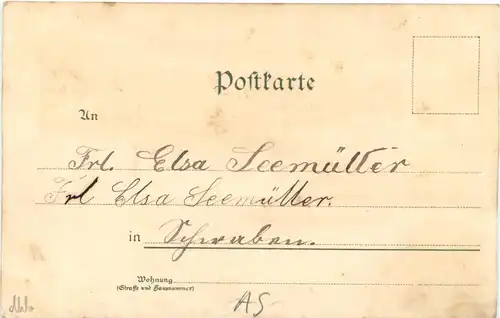 Postkarte
An
Frl. Elsa Seemüller
Frl Elsa Seemüller.
in Schwaben.
Wohnung
(Straße und Hausnummer)
AS